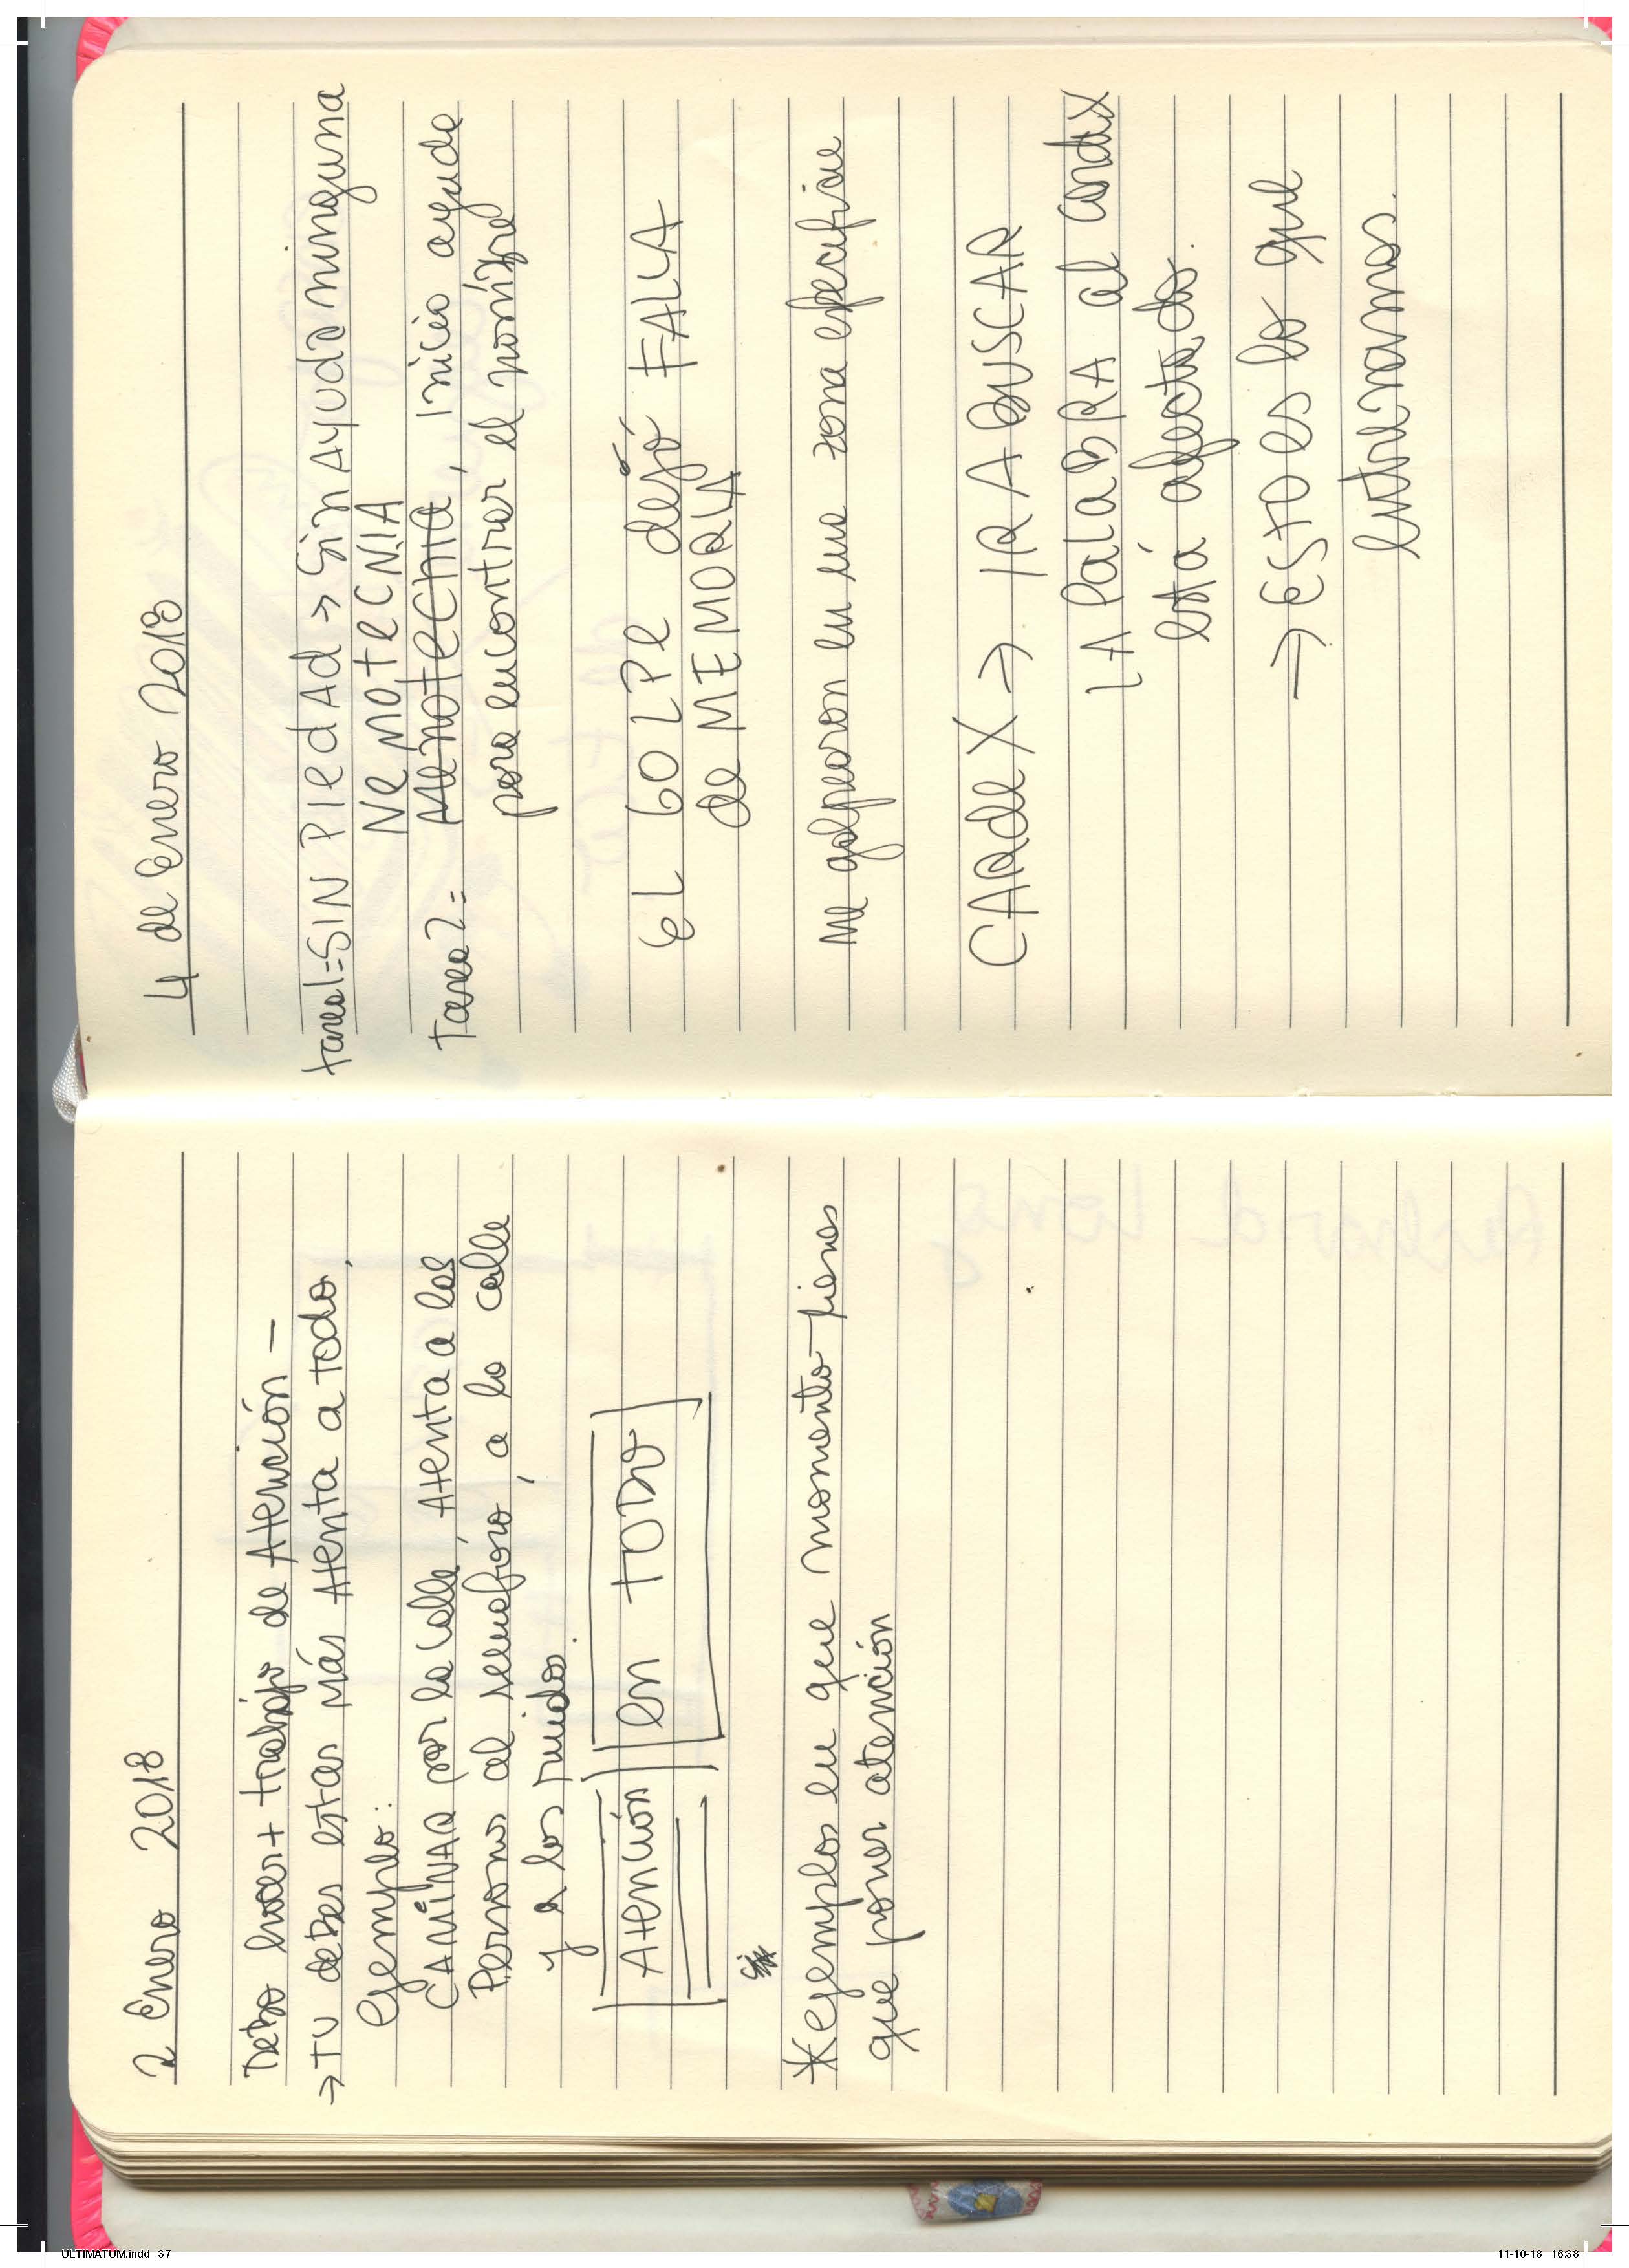 2 Enero 2018
Debo hacer + trabajo de Atención –
→ TU debes estar más Atenta a todo,
Ejemplo:
CAMINAR por la calle, Atenta a las
Personas al semaforo, a la calle
y a los ruidos.
Atención en TODO
* ejemplos en que momento tienes
que poner atención
4 de Enero 2018
tarea 1 = SIN PIEdAd → Sin AYuda ninguna
NemoteCNIA
Tarea 2 = MenoteChia, Inicio ayuda
para encontrar el nombre
EL GOLPE dejó FALLA
de MEMORIA
Me golpearon en una zona especifica
CARdeX → IR A BUSCAR
LA PalaBRA al cardex
está afectado.
→ ESTO es lo que
entrenamos.
ULTIMATUM.indd 37
11-10-18 16:38